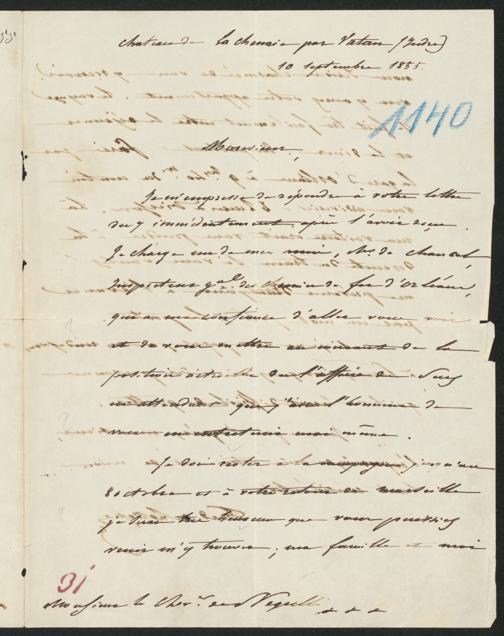 chateau de la chenaie par Vatan (Indre)
10 septembre 1855
1140
Monsieur,
Je m'empresse de répondre à votre lettre
du 7 immédiatement après l'avoir reçue.
Je charge un de mes amis, Mr. de Chancel,
Inspecteur gal. du chemin de fer d'Orléans,
qui a ma confiance d'aller vous voir
et de vous mettre au courant de la
position actuelle de l'affaire de Suez
en attendant que j'aie l'honneur de
vous en entretenir moi même.
Je dois rester à la campagne jusqu'au
8 octobre et à votre retour de marseille
je serai très heureux que vous puissiez
venir m'y trouver; ma famille et moi
31
Monsieur le Cher. de Negrelli